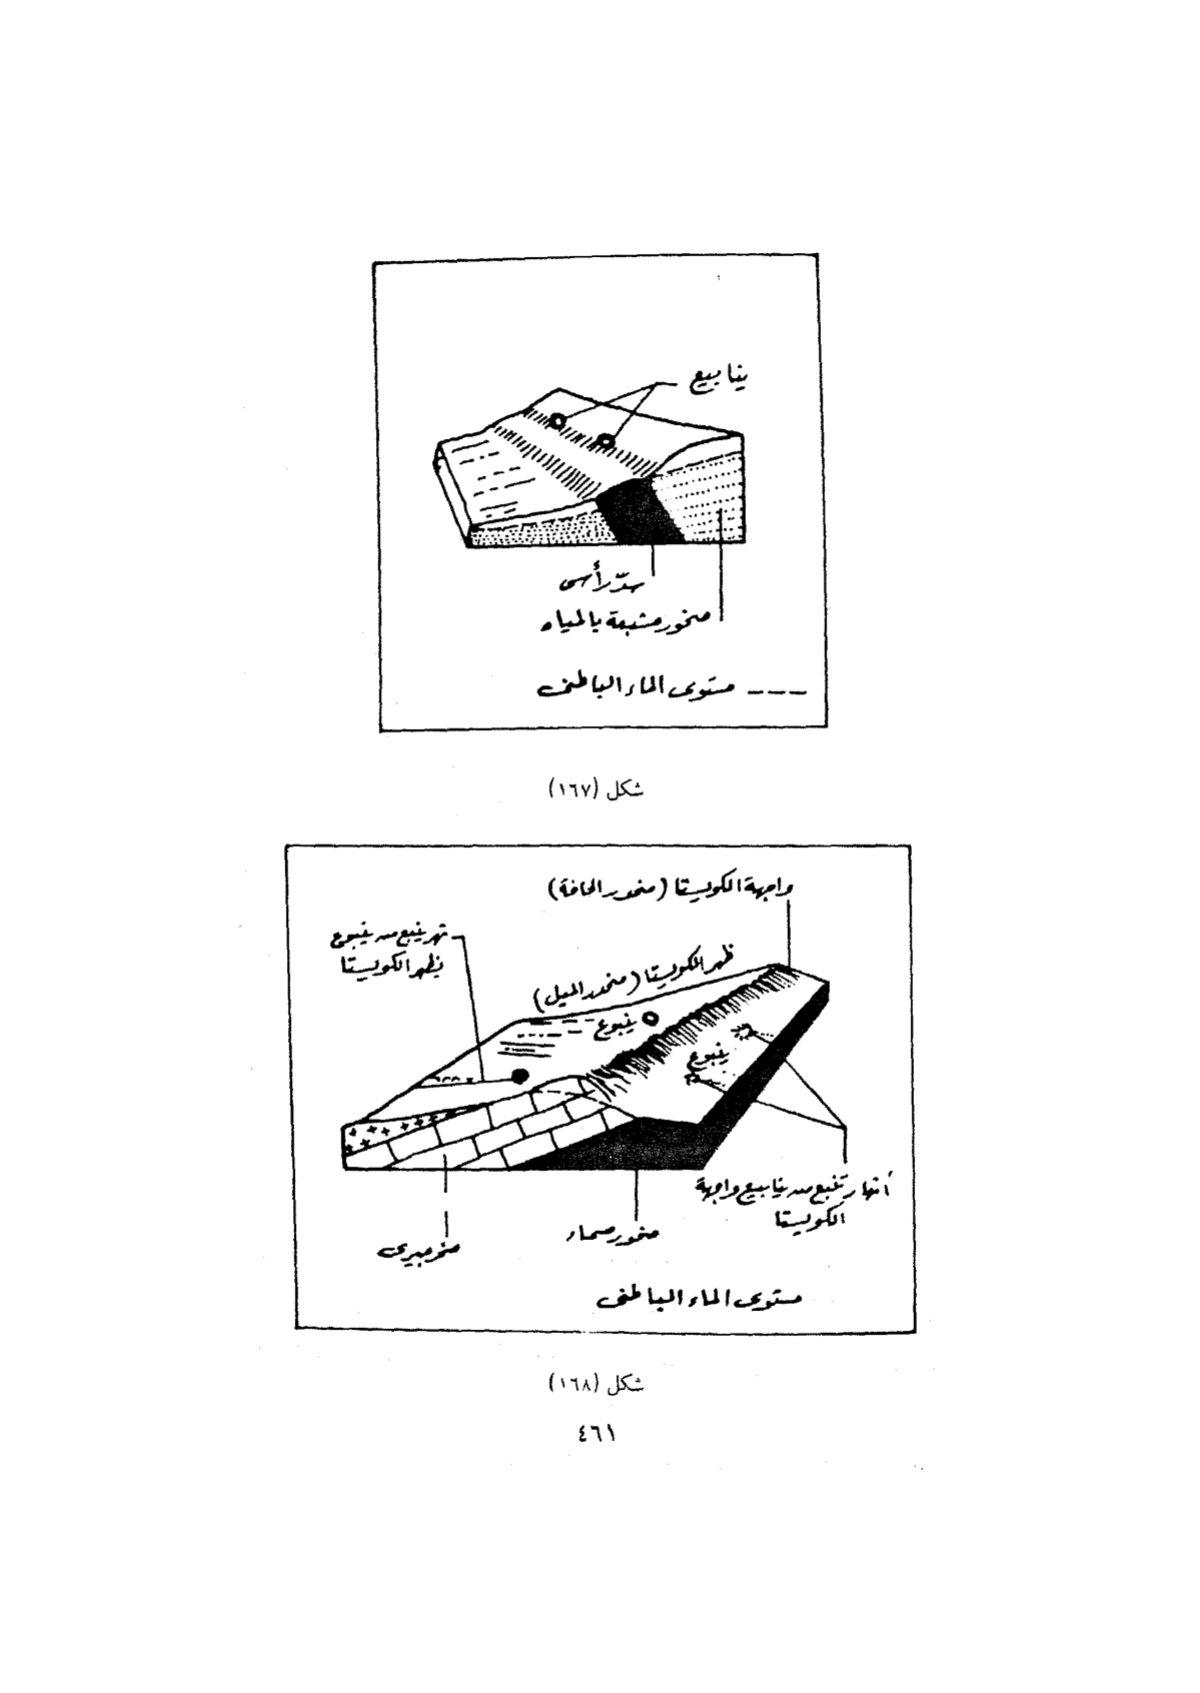 ينابيع
سدّ رأسى
صخور مشبعة بالمياه
مستوى الماء الباطنى
شكل (١٦٧)
واجهة الكويستا (منحدر الحافة)
نهر ينبع من ينبوع
بظهر الكويستا
ظهر الكويستا (منحدر الميل)
ينبوع
ينبوع
أنهار تنبع من ينابيع واجهة
الكويستا
صخور صماء
صخر جيرى
مستوى الماء الباطنى
شكل (١٦٨)
٤٦١